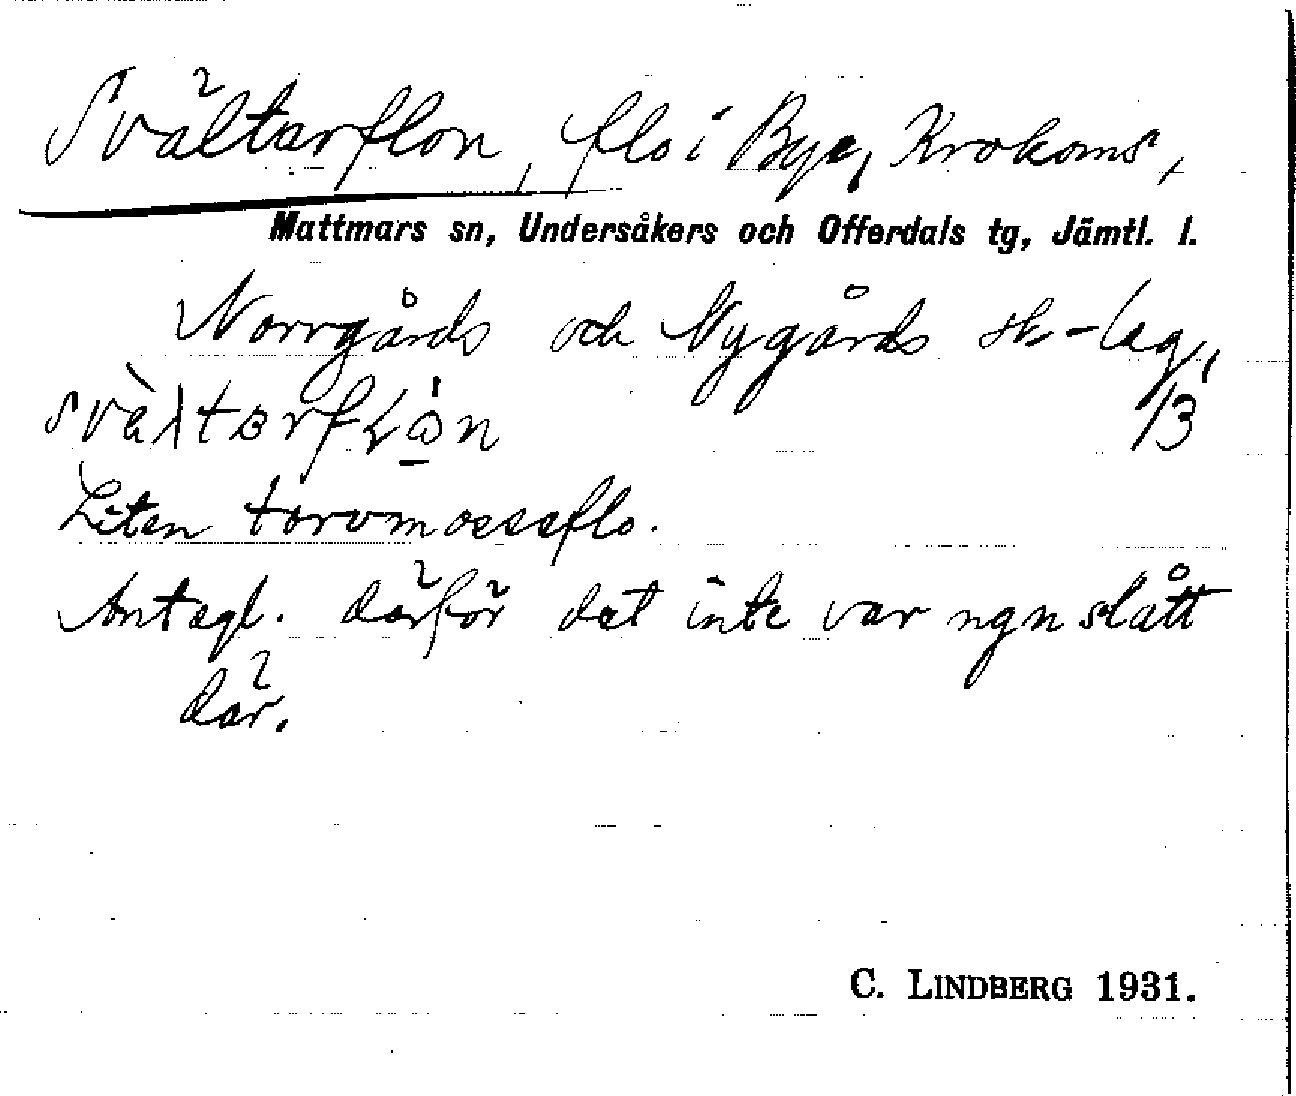 Svältarflon, flo i Bye, Krokoms,
Mattmars sn, Undersåkers och Offerdals tg, Jämtl. l.
Norrgårds och Nygårds sk-lag,
13
Liten torvmosseflo.
Antagl. därför det inte var ngn slått
där.
C. LINDBERG 1931.